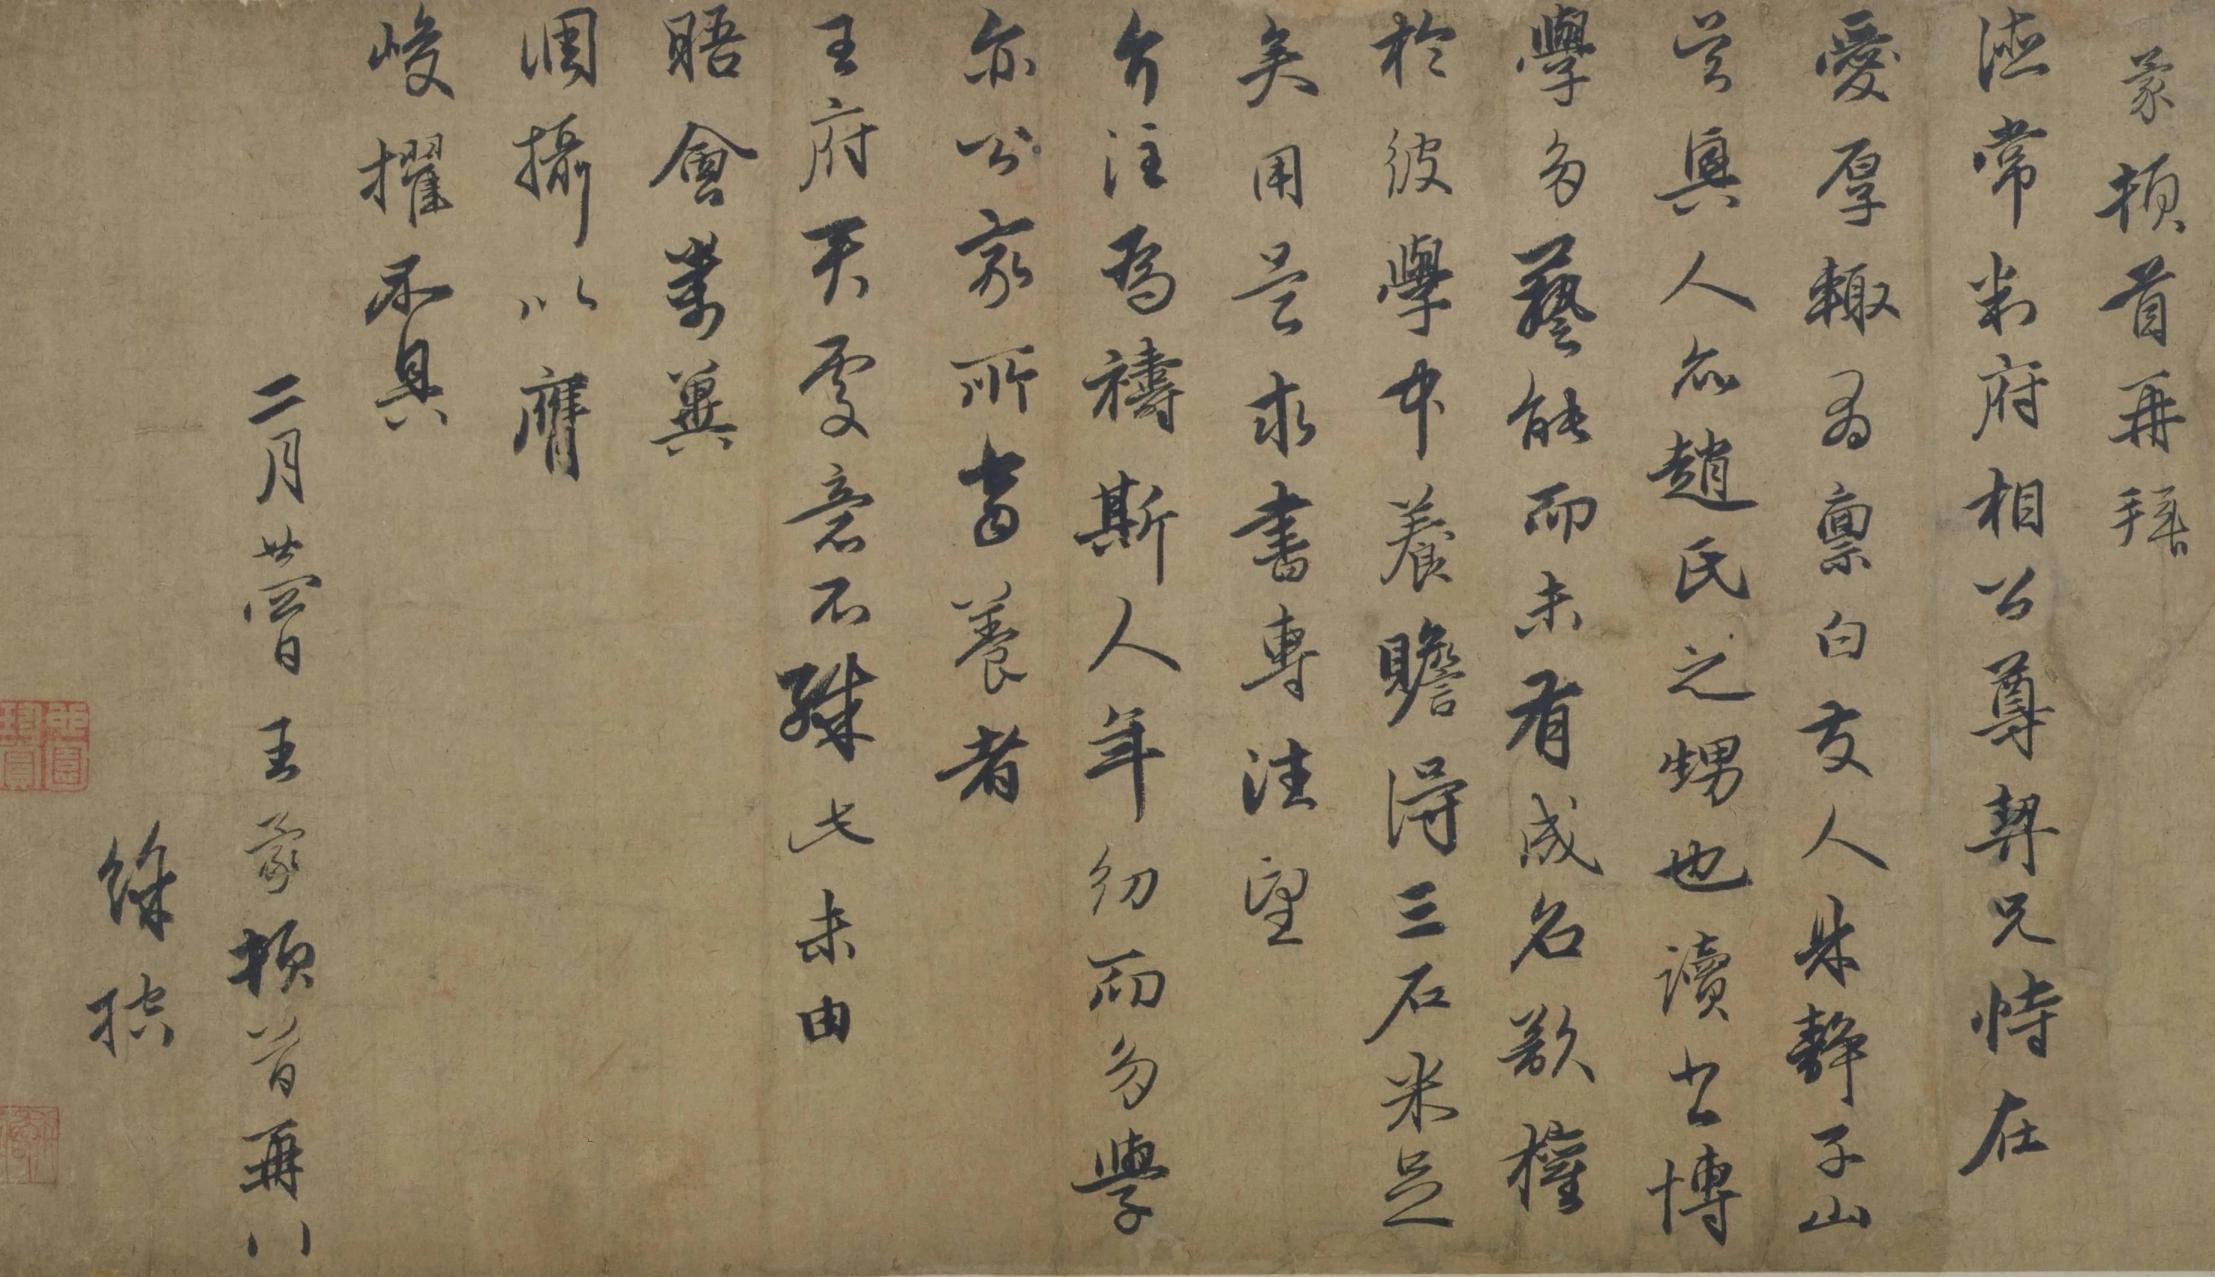 蒙頓首再拜
德常判府相公尊契兄恃在
愛厚輒為稟白友人朱靜子山
吳興人亦趙氏之甥也讀書博
學多藝能而未有成名欲權
於彼學中養贍得三石米足
矣用是求書專注望
介注為禱斯人年幼而多學
亦公家所當養者
王府天處意不殊此未由
晤會萬冀
調攝以膺
峻擢不具
二月廿四日王蒙頓首再